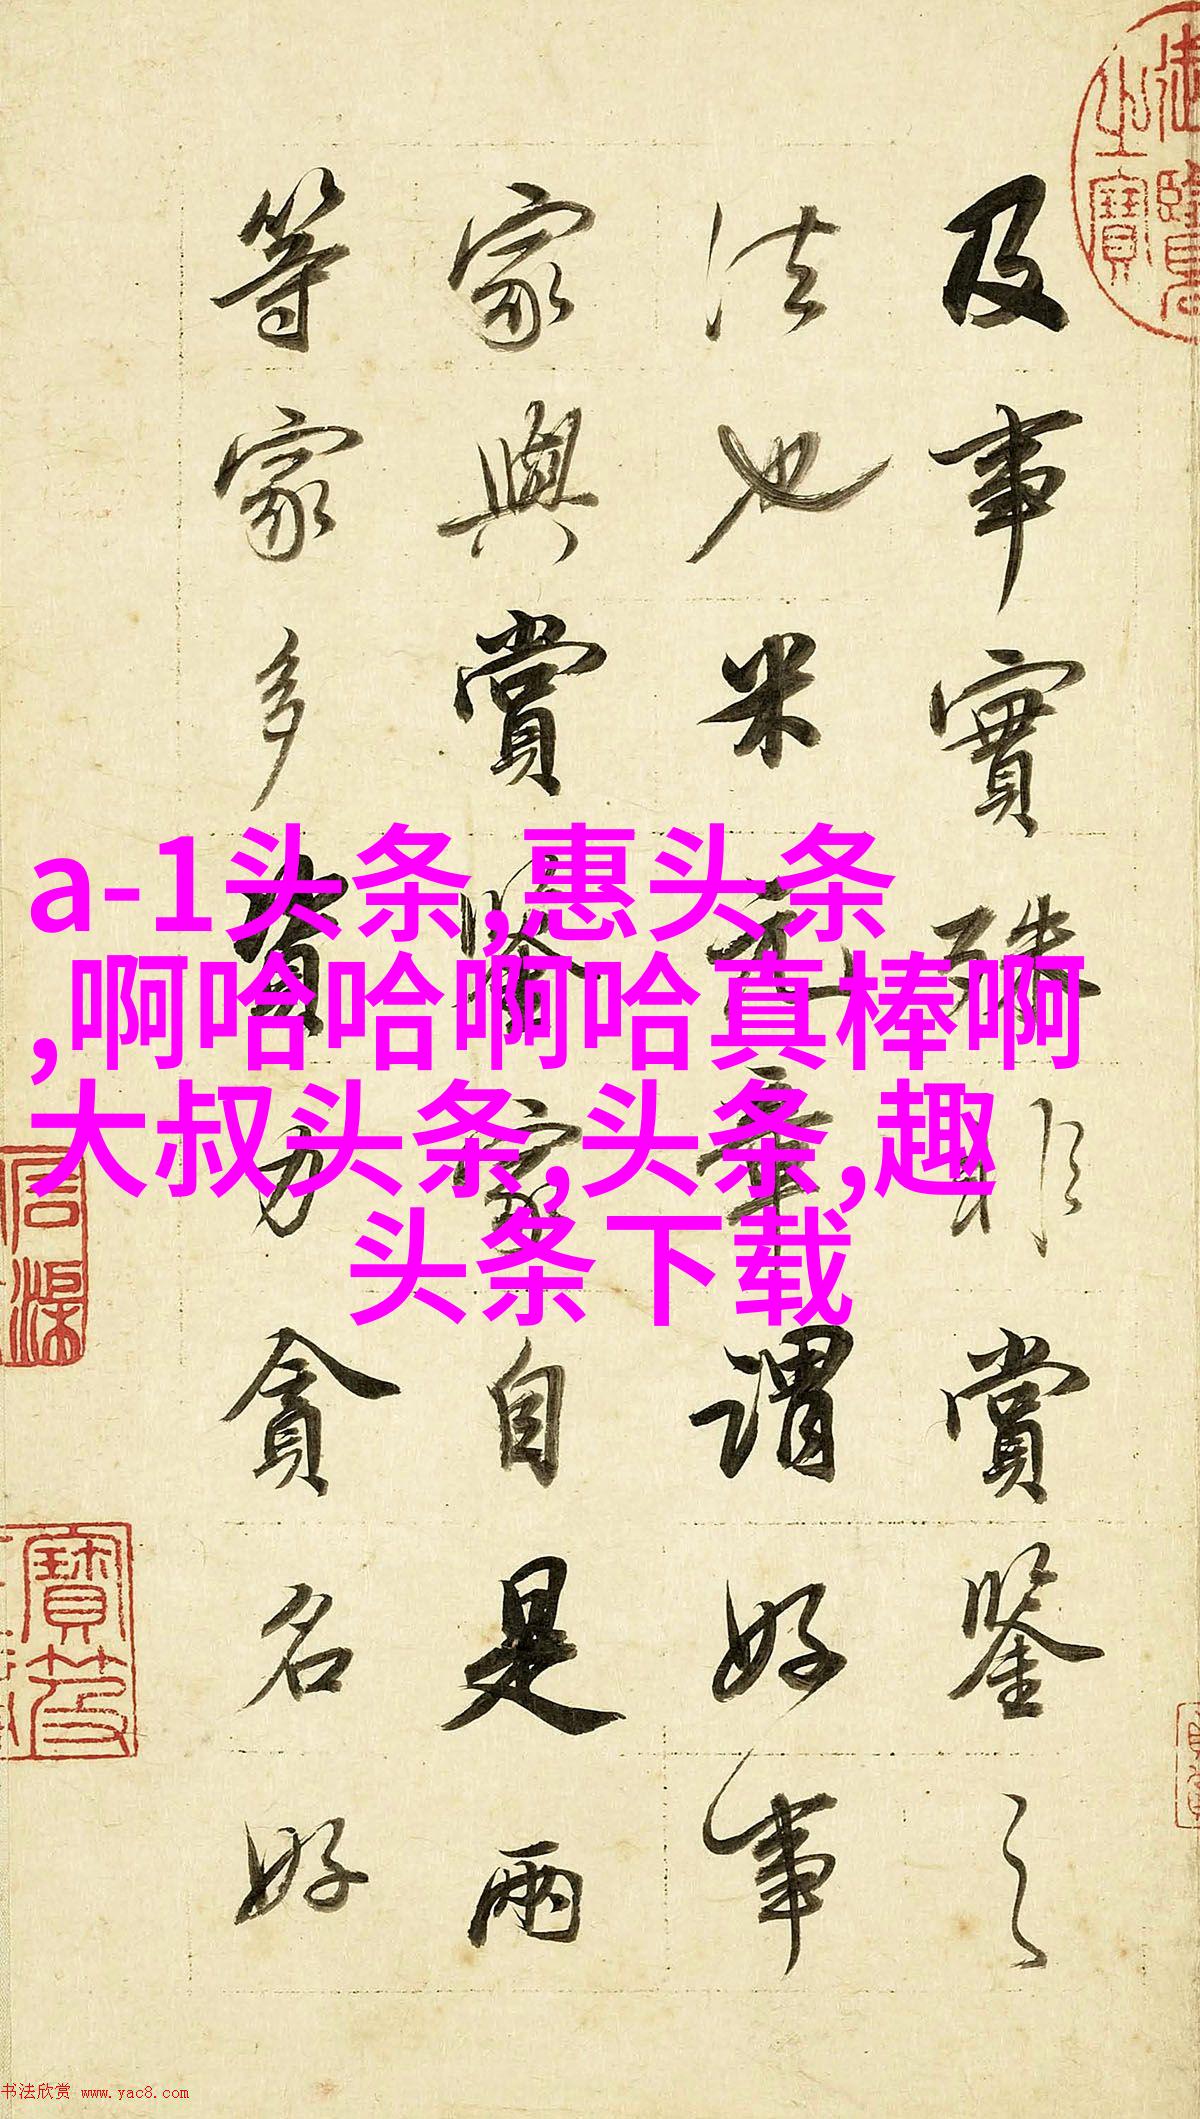 a-1头条,惠头条
,啊哈哈啊哈真棒啊
大叔头条,头条,趣
头条下载
及事實殊非賞鑒之
法也米元章謂好事
家與賞鑒家自是兩
等家多資力貪名好
石渠
寶笈
书法欣赏 www.yac8.com